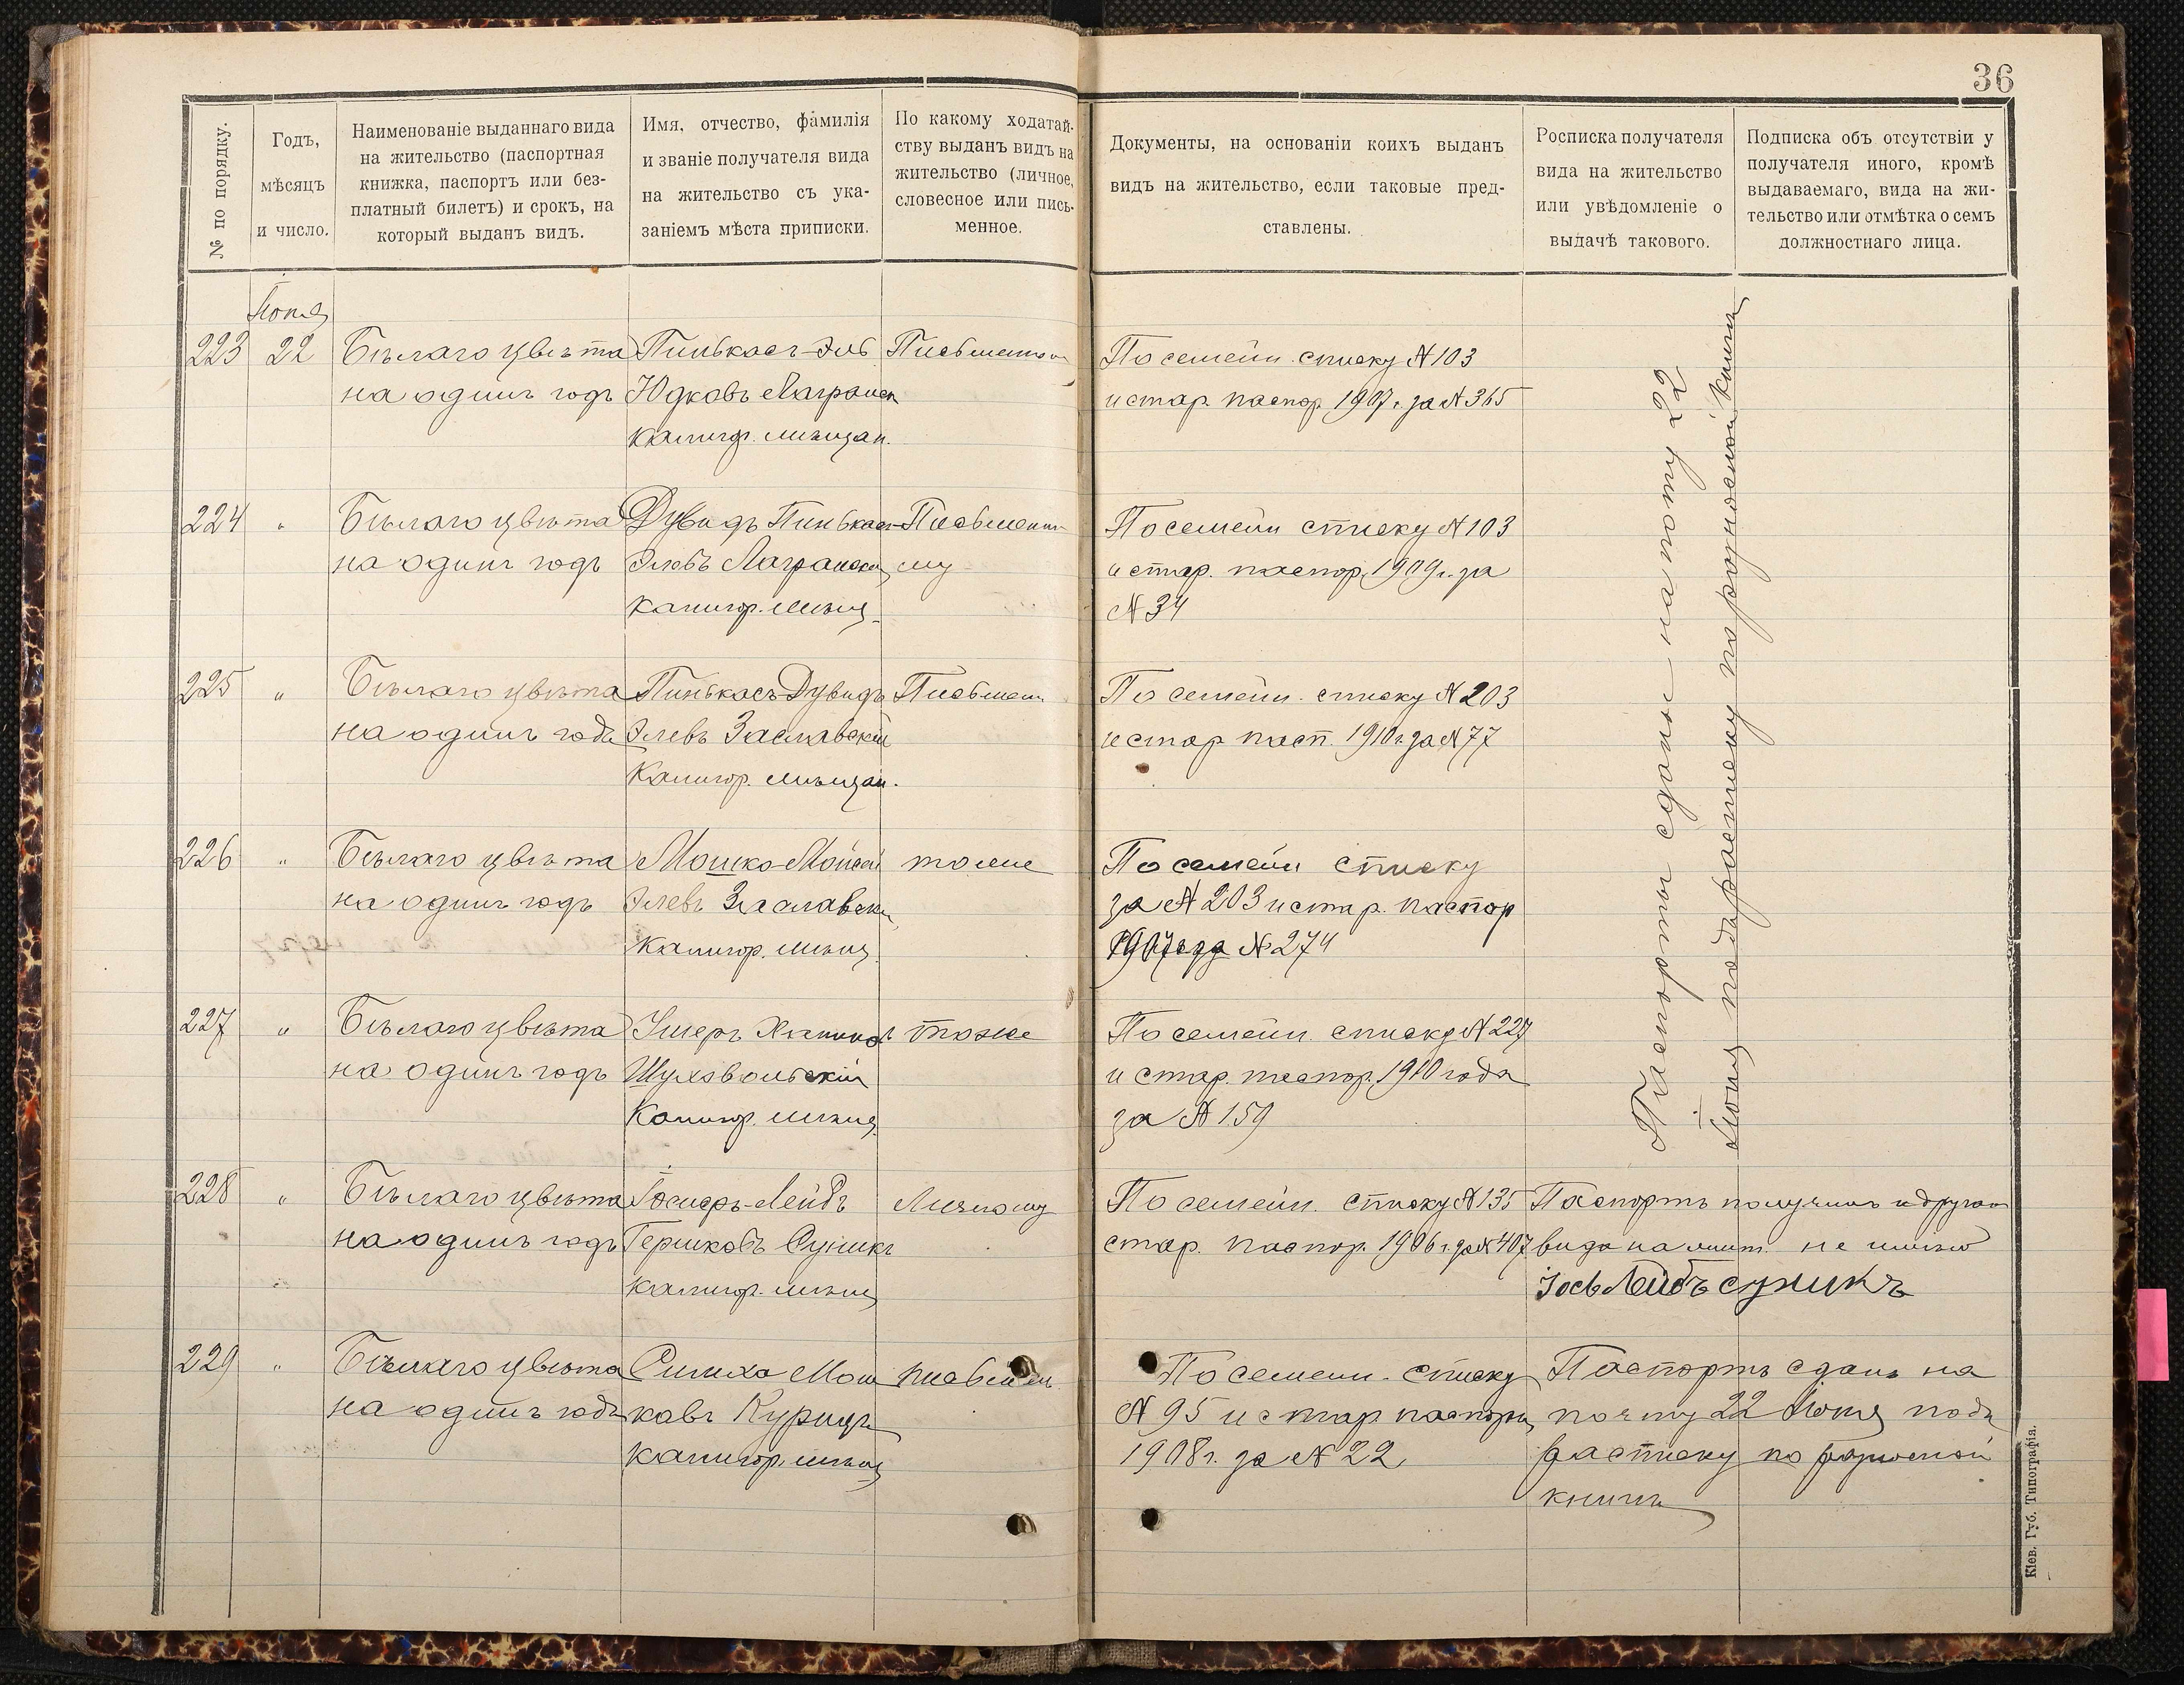 36
№ по порядку.
Годъ,
мѣсяцъ
и число.
Наименованіе выданнаго вида
на жительство (паспортная
книжка, паспортъ или без-
платный билетъ) и срокъ, на
который выданъ видъ.
Имя, отчество, фамилія
и званіе получателя вида
на жительство съ ука-
заніемъ мѣста приписки.
По какому ходатай-
ству выданъ видъ на
жительство (личное,
словесное или пись-
менное.
Документы, на основаніи коихъ выданъ
видъ на жительство, если таковые пред-
ставлены.
Росписка получателя
вида на жительство
или увѣдомленіе о
выдачѣ такового.
Подписка объ отсутствіи у
получателя иного, кромѣ
выдаваемаго, вида на жи-
тельство или отмѣтка о семъ
должностнаго лица.
Іюня
223 22 Бѣлаго цвѣта
на одинъ годъ
Пинькасъ-Эль
Юдковъ
Калигор. мѣщан.
По семейн. списку № 103
и стар. паспор. 1907 г. за № 365
224 " Бѣлаго цвѣта
на одинъ годъ
Дувидъ Пинькасъ-
Элевъ
Калигор. мѣщ.
По семейн списку № 103
и стар. паспор. 1909 г. за
№ 34
225 " Бѣлаго цвѣта
на одинъ годъ
Пинькасъ-Дувидъ
Элевъ Заславскій
Калигор. мѣщан.
Письмен.
По семейн. списку № 203
и стар пасп. 1910 г. за № 77
226 " Бѣлаго цвѣта
на одинъ годъ
Мошко-Мойсей
Элевъ Заславскій
Калигор. мѣщ.
тоже
По семейн списку
за № 203 и стар. паспор
1907 г за № 274
227 " Бѣлаго цвѣта
на одинъ годъ
Ушеръ
Калигор. мѣщ.
тоже
По семейн. списку № 227
и стар. паспор. 1910 года
за № 159
Паспорты сданы на почту 22
Іюня подъ расписку по разносной книгѣ
228 " Бѣлаго цвѣта
на одинъ годъ
Гершковъ Суникъ
Калигор. мѣщ
Личному
По семейн. списку № 135
стар. паспор. 1906 г. за № 407
Паспортъ получилъ и другого
вида на жит. не имѣю
Іось Лейбъ суникъ
229 " Бѣлаго цвѣта
на одинъ годъ
Симха Мош
ковъ Курицъ
Калигор. мѣщ
письмен
По семейн. списку
№ 95 и стар. паспорту
1908 г. за № 22
Паспортъ сданъ на
почту 22 Іюня подъ
расписку по разносной
книгѣ
Кіев. Губ. Типографія.